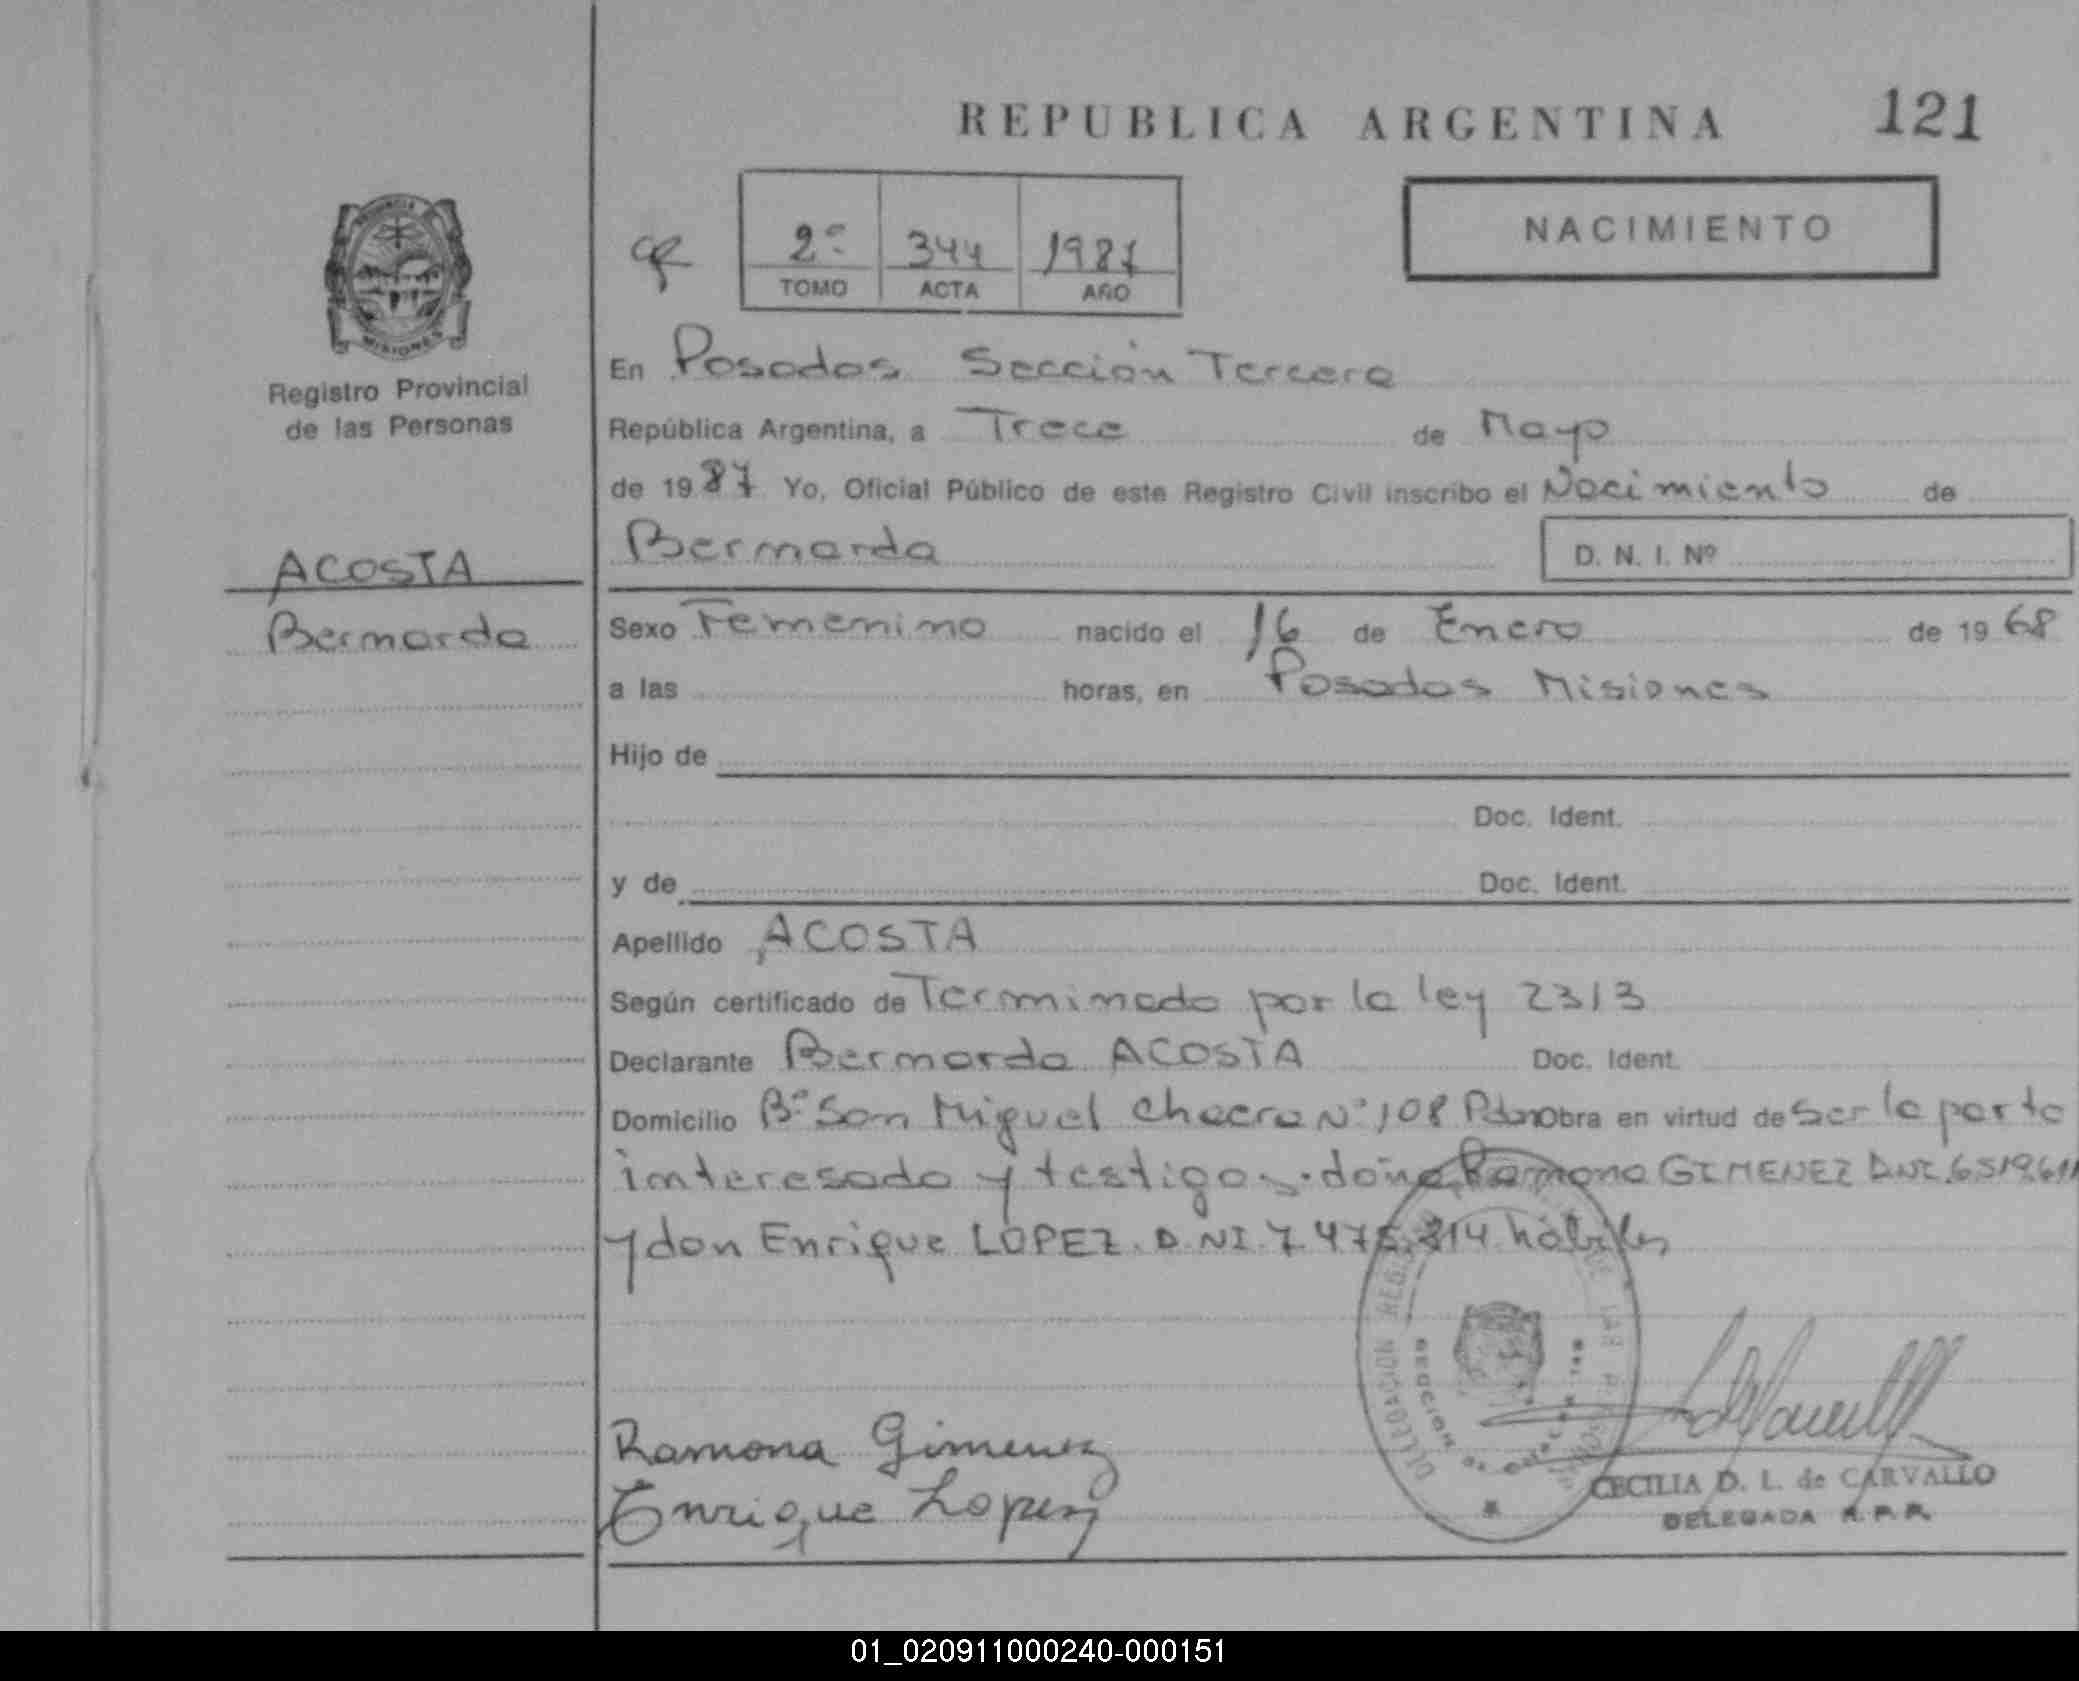 REPUBLICA ARGENTINA 121
NACIMIENTO
2º 344 1987
TOMO ACTA AÑO
PROVINCIA
MISIONES
Registro Provincial
de las Personas
ACOSTA
Bernarda
En Posadas Sección Tercera
República Argentina, a Trece de Mayo
de 1987 Yo, Oficial Público de este Registro Civil inscribo el Nacimiento de
Bernarda D. N. I. Nº
Sexo Femenino nacido el 16 de Enero de 1968
a las horas, en Posadas Misiones
Hijo de
Doc. Ident.
y de Doc. Ident.
Apellido ACOSTA
Según certificado de Terminado por la ley 2313
Declarante Bernarda ACOSTA Doc. Ident.
Domicilio Bº San Miguel Chacra Nº 108 Pdas Obra en virtud de ser la parte
interesada y testigos doña Ramona GIMENEZ DNI.6.519.611
y don Enrique LOPEZ. D.NI.7.475.814 hábiles
Ramona Gimenez
Enrique Lopez
DELEGACION REGISTRO DE LAS PERSONAS
CECILIA D. L. de CARVALLO
DELEGADA R.P.P.
01_020911000240-000151